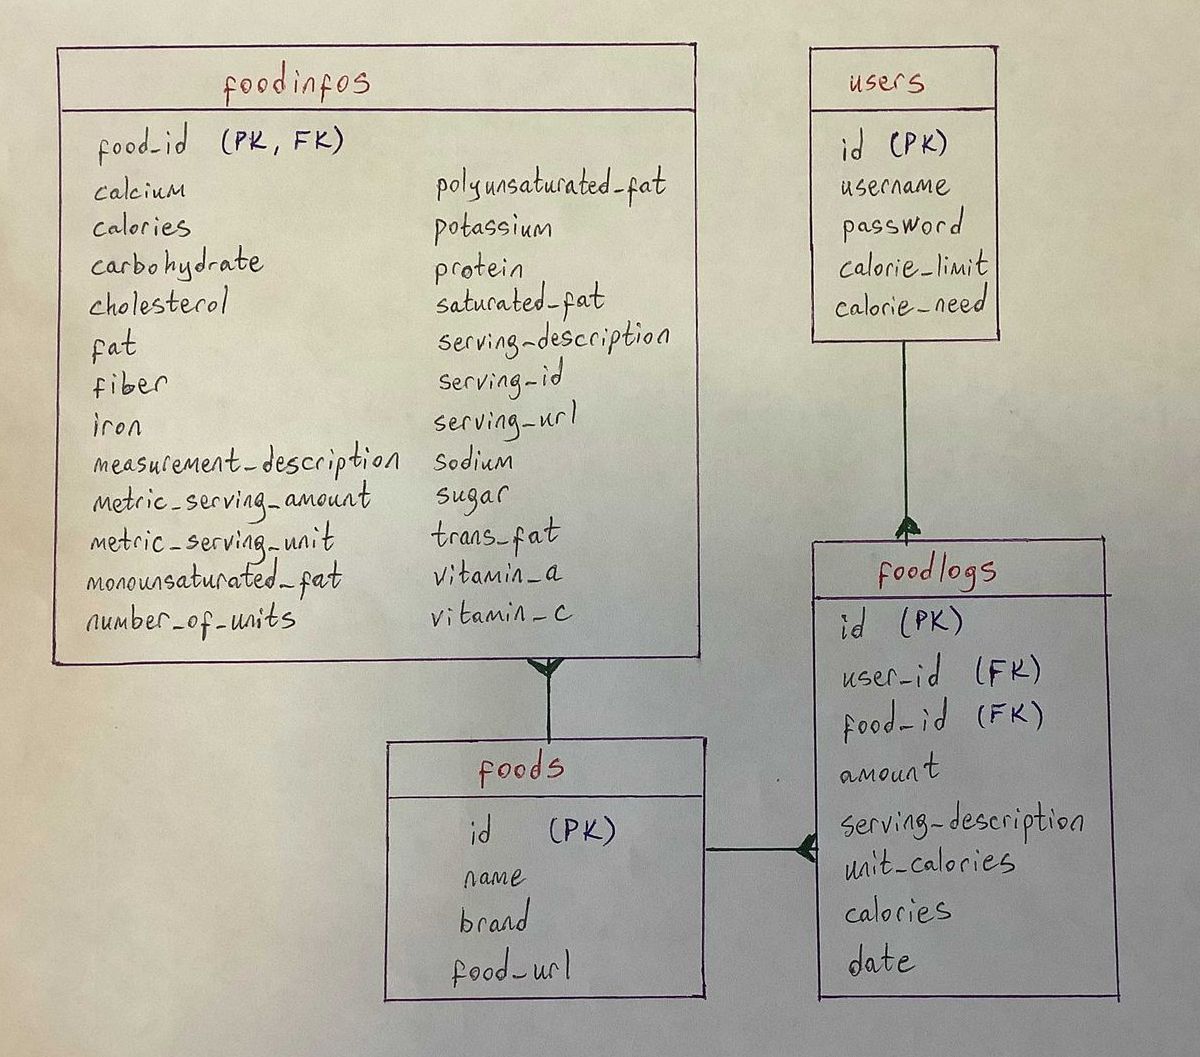 foodinfos
food_id (PK, FK)
calcium
calories
carbohydrate
cholesterol
fat
fiber
iron
measurement_description
metric_serving_amount
metric_serving_unit
monounsaturated_fat
number_of_units
polyunsaturated_fat
potassium
protein
saturated_fat
serving_description
serving_id
serving_url
sodium
sugar
trans_fat
vitamin_a
vitamin_c
users
id (PK)
username
password
calorie_limit
calorie_need
foods
id (PK)
name
brand
food_url
foodlogs
id (PK)
user_id (FK)
food_id (FK)
amount
serving_description
unit_calories
calories
date